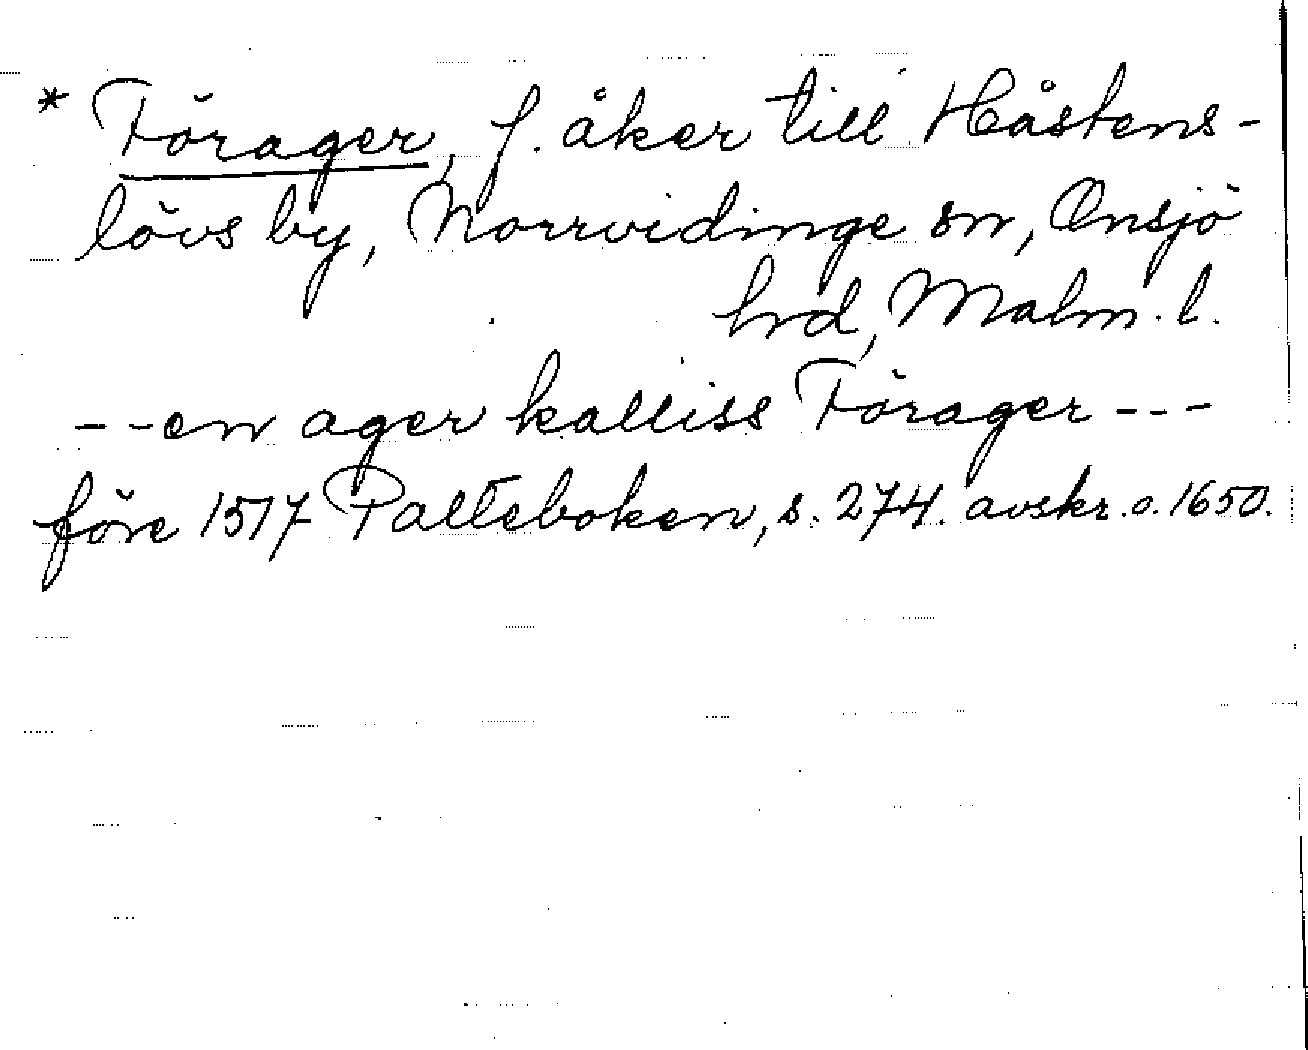 * Förager, f. åker till Håstens-
lövs by, Norrvidinge sn, Onsjö
hrd, Malm. l.
- - en ager kalliss Förager - - -
före 1517 Palteboken, s. 274. avskr. o. 1650.